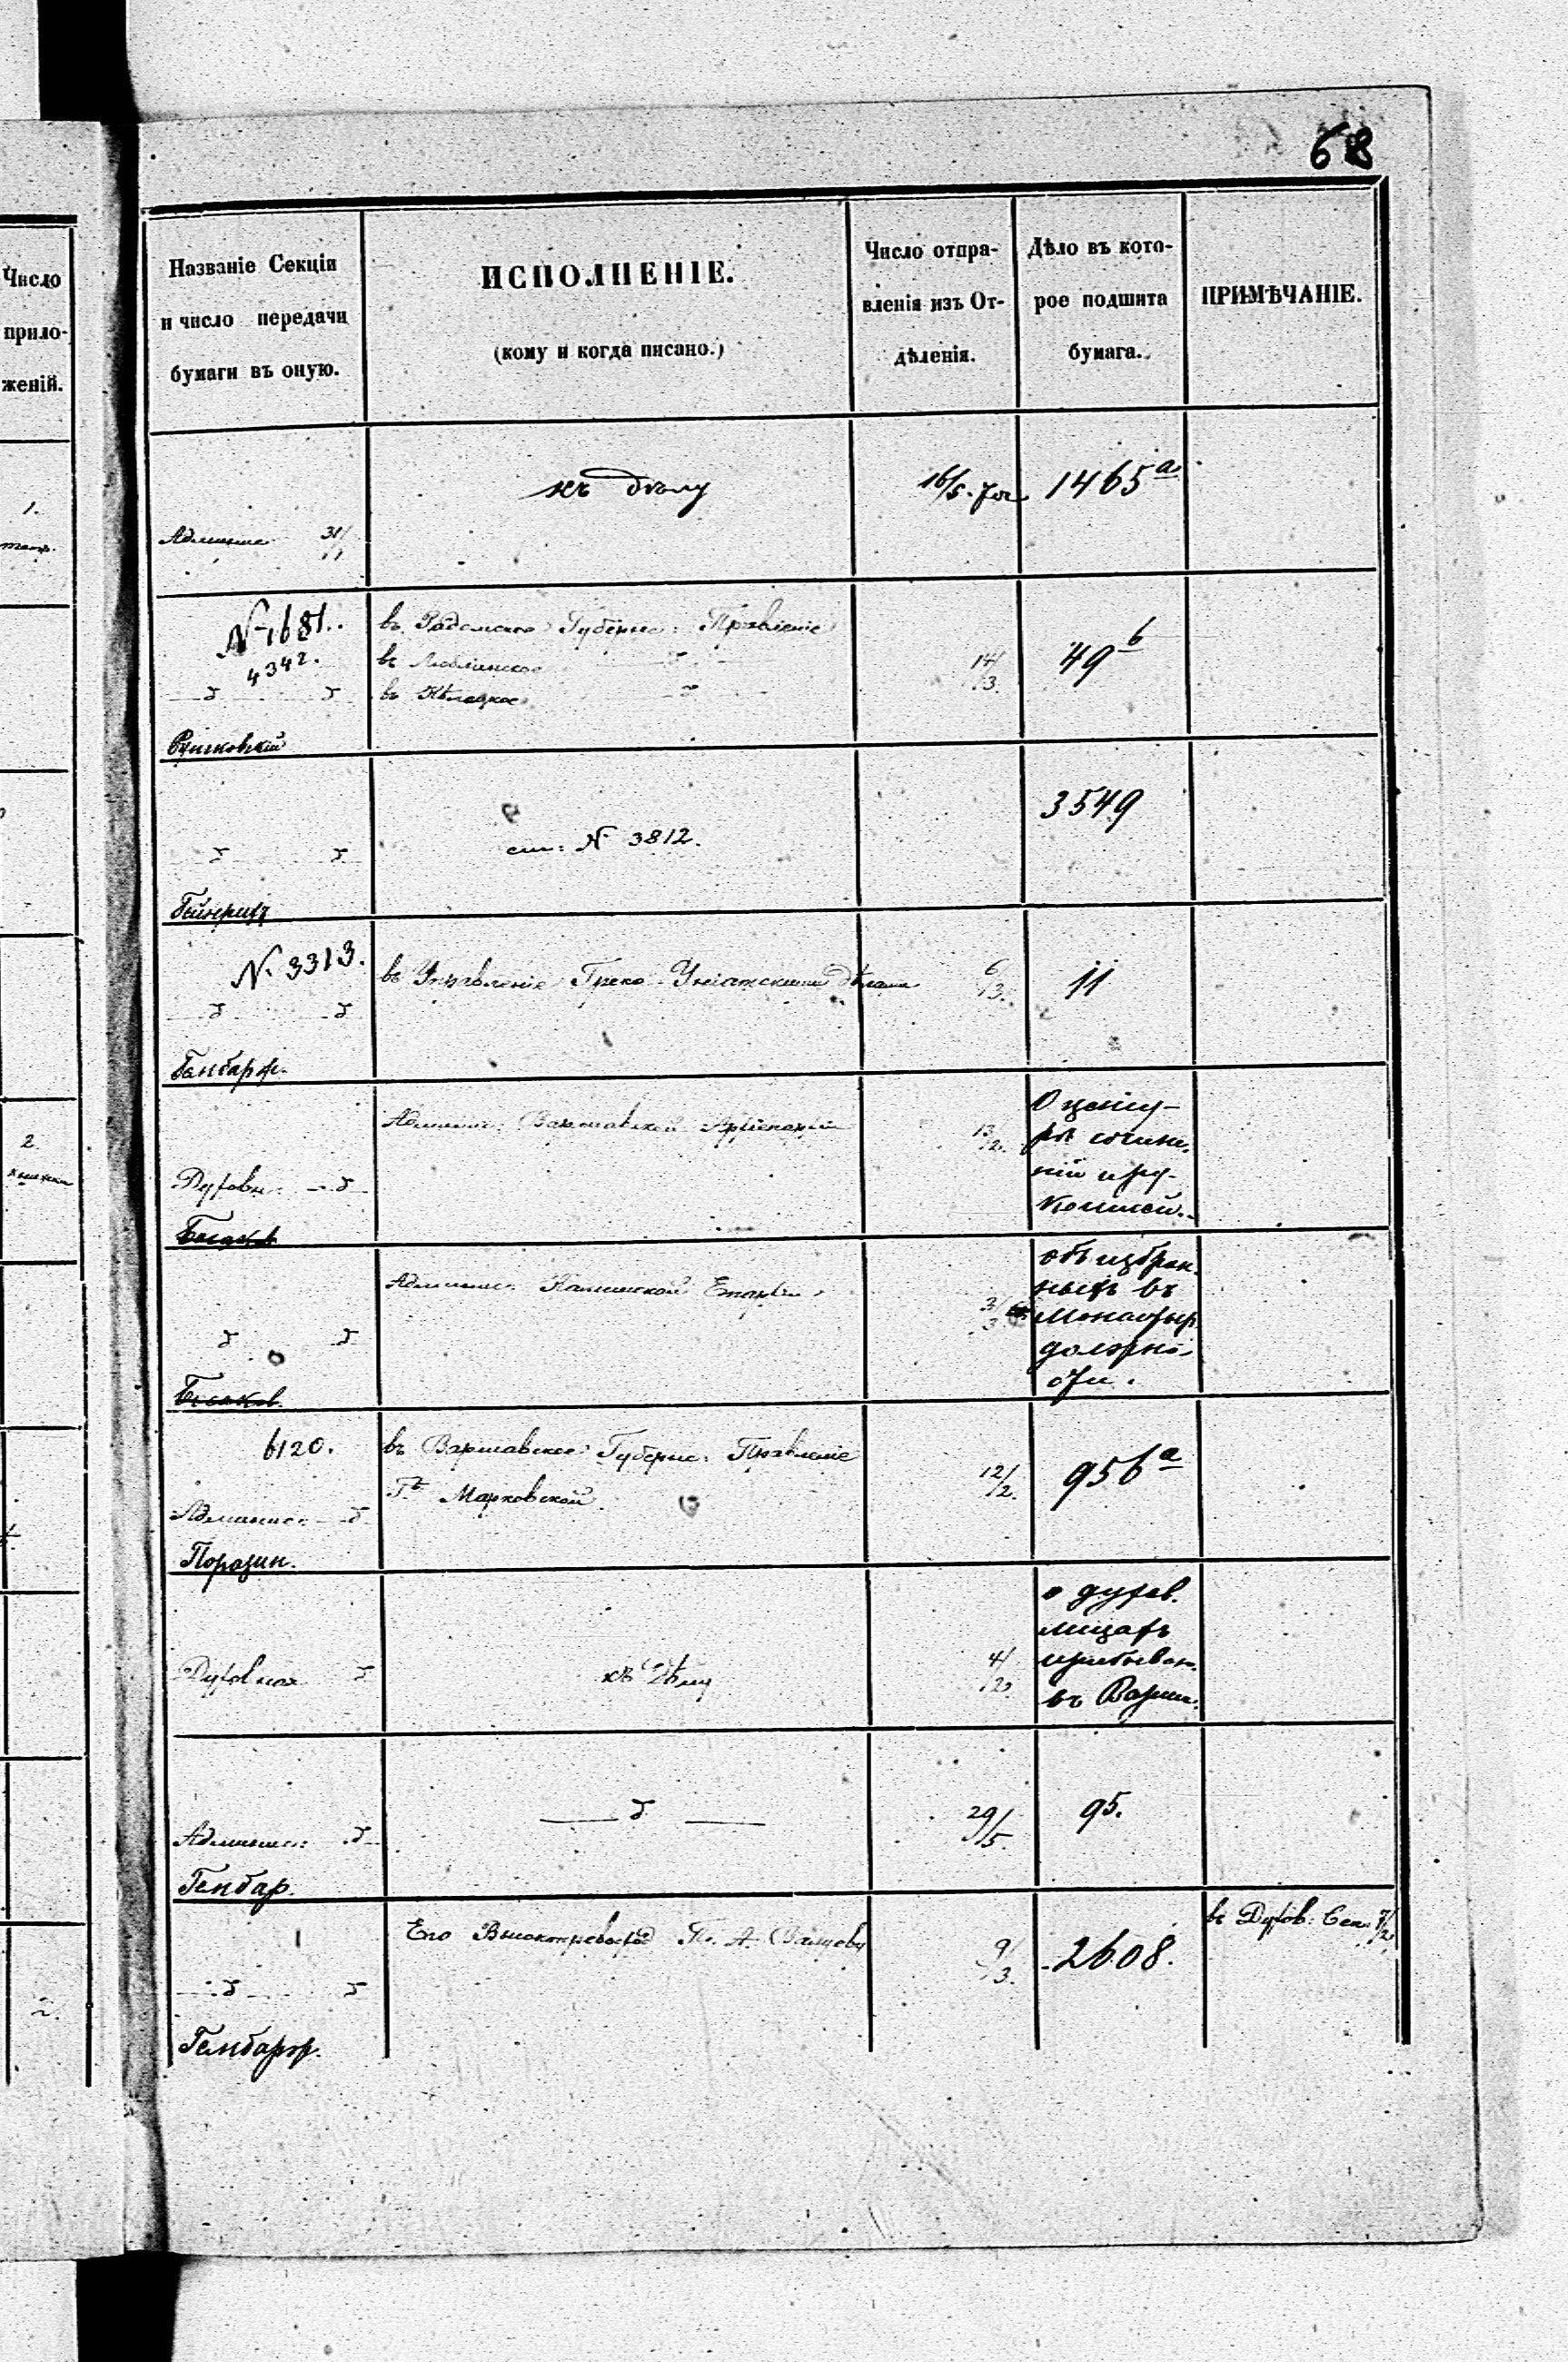 68
Число
прило-
женій.
1.
2
2.
Названіе Секціи
и число передачи
бумаги въ оную.
ИСПОЛНЕНІЕ.
(кому и когда писано.)
Число отпра-
вленія изъ От-
дѣленія.
Дѣло въ кото-
рое подшита
бумага.
ПРИМѢЧАНІЕ.
Админис. 31/1
къ дѣлу
1465 а
№ 1681.
4342.
въ Радомское Губернс: Правленіе
въ Люблинское
въ Кѣлецкое
14/3.
49 б
см: № 3812.
3549
№ 3313.
въ Управленіе Греко-Уніатскими дѣлами
6/3.
11
Духовн.
Админис: Варшавской Архіепархіи
13/2.
О цензу-
рѣ сочине-
ній и ру-
кописей.
Админис: Калишской Епархіи
3/3
объ избран-
ныхъ въ
монастыр.
должно-
сти.
6120.
Админис:
Поразин.
въ Варшавское Губернс: Правленіе
Гжѣ Марковской.
12/2.
956 а
Духовная
къ дѣлу
4/2
о духов.
лицахъ
прибывш.
въ Варш.
Админис:
Генбар.
29/5.
95.
Его Высокопревосход П. А. Валуеву
9/3.
2608.
въ Духов: Сек. 7/2